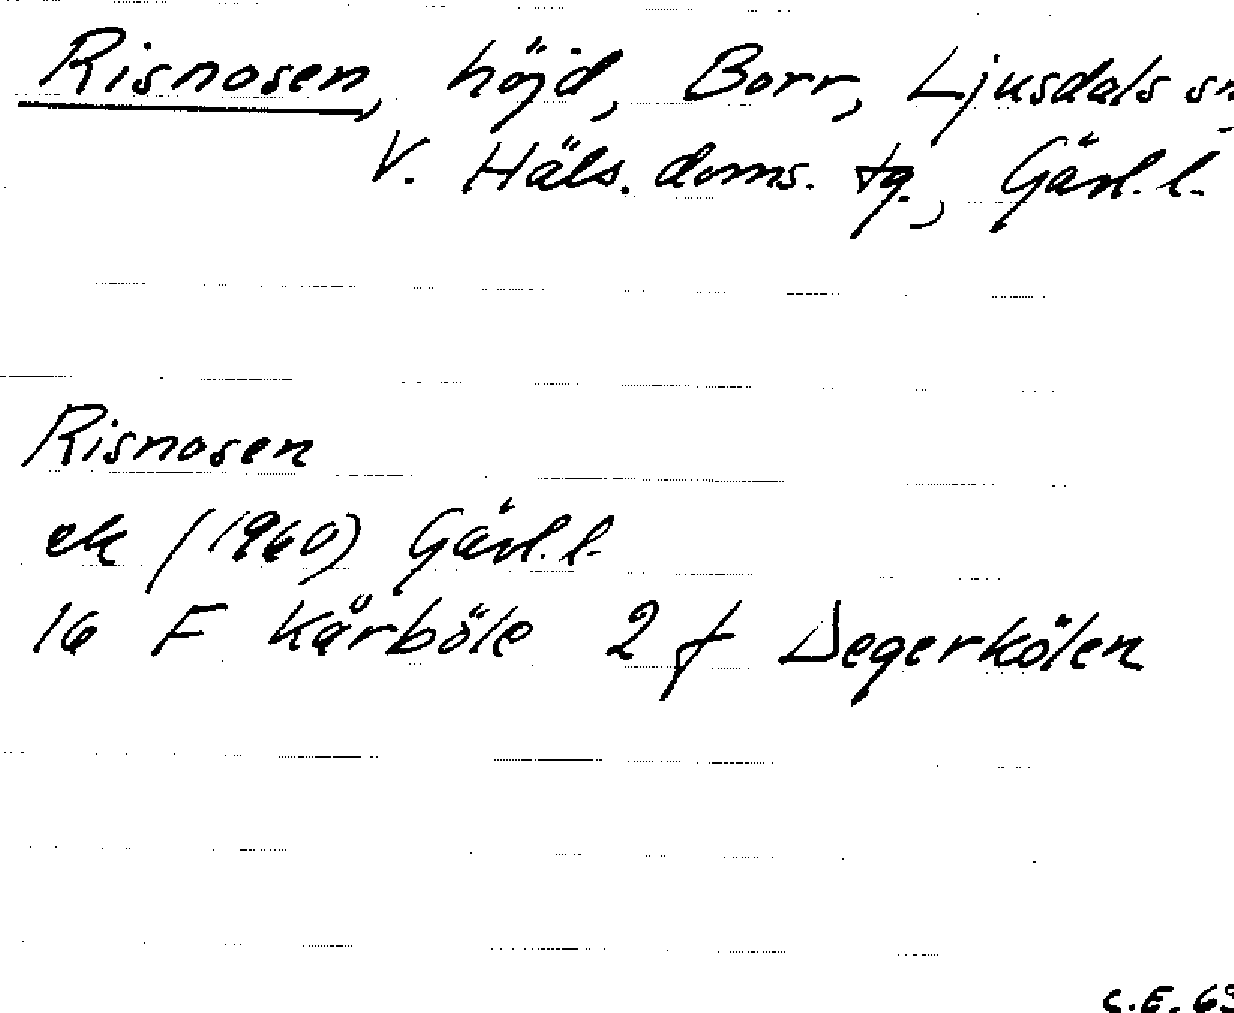 Risnosen, höjd, Borr, Ljusdals sn
V. Häls. doms. tg., Gävl. l.
Risnosen
ek (1960) Gävl. l.
16 F Kårböle 2 f Degerkölen
C.E. 63